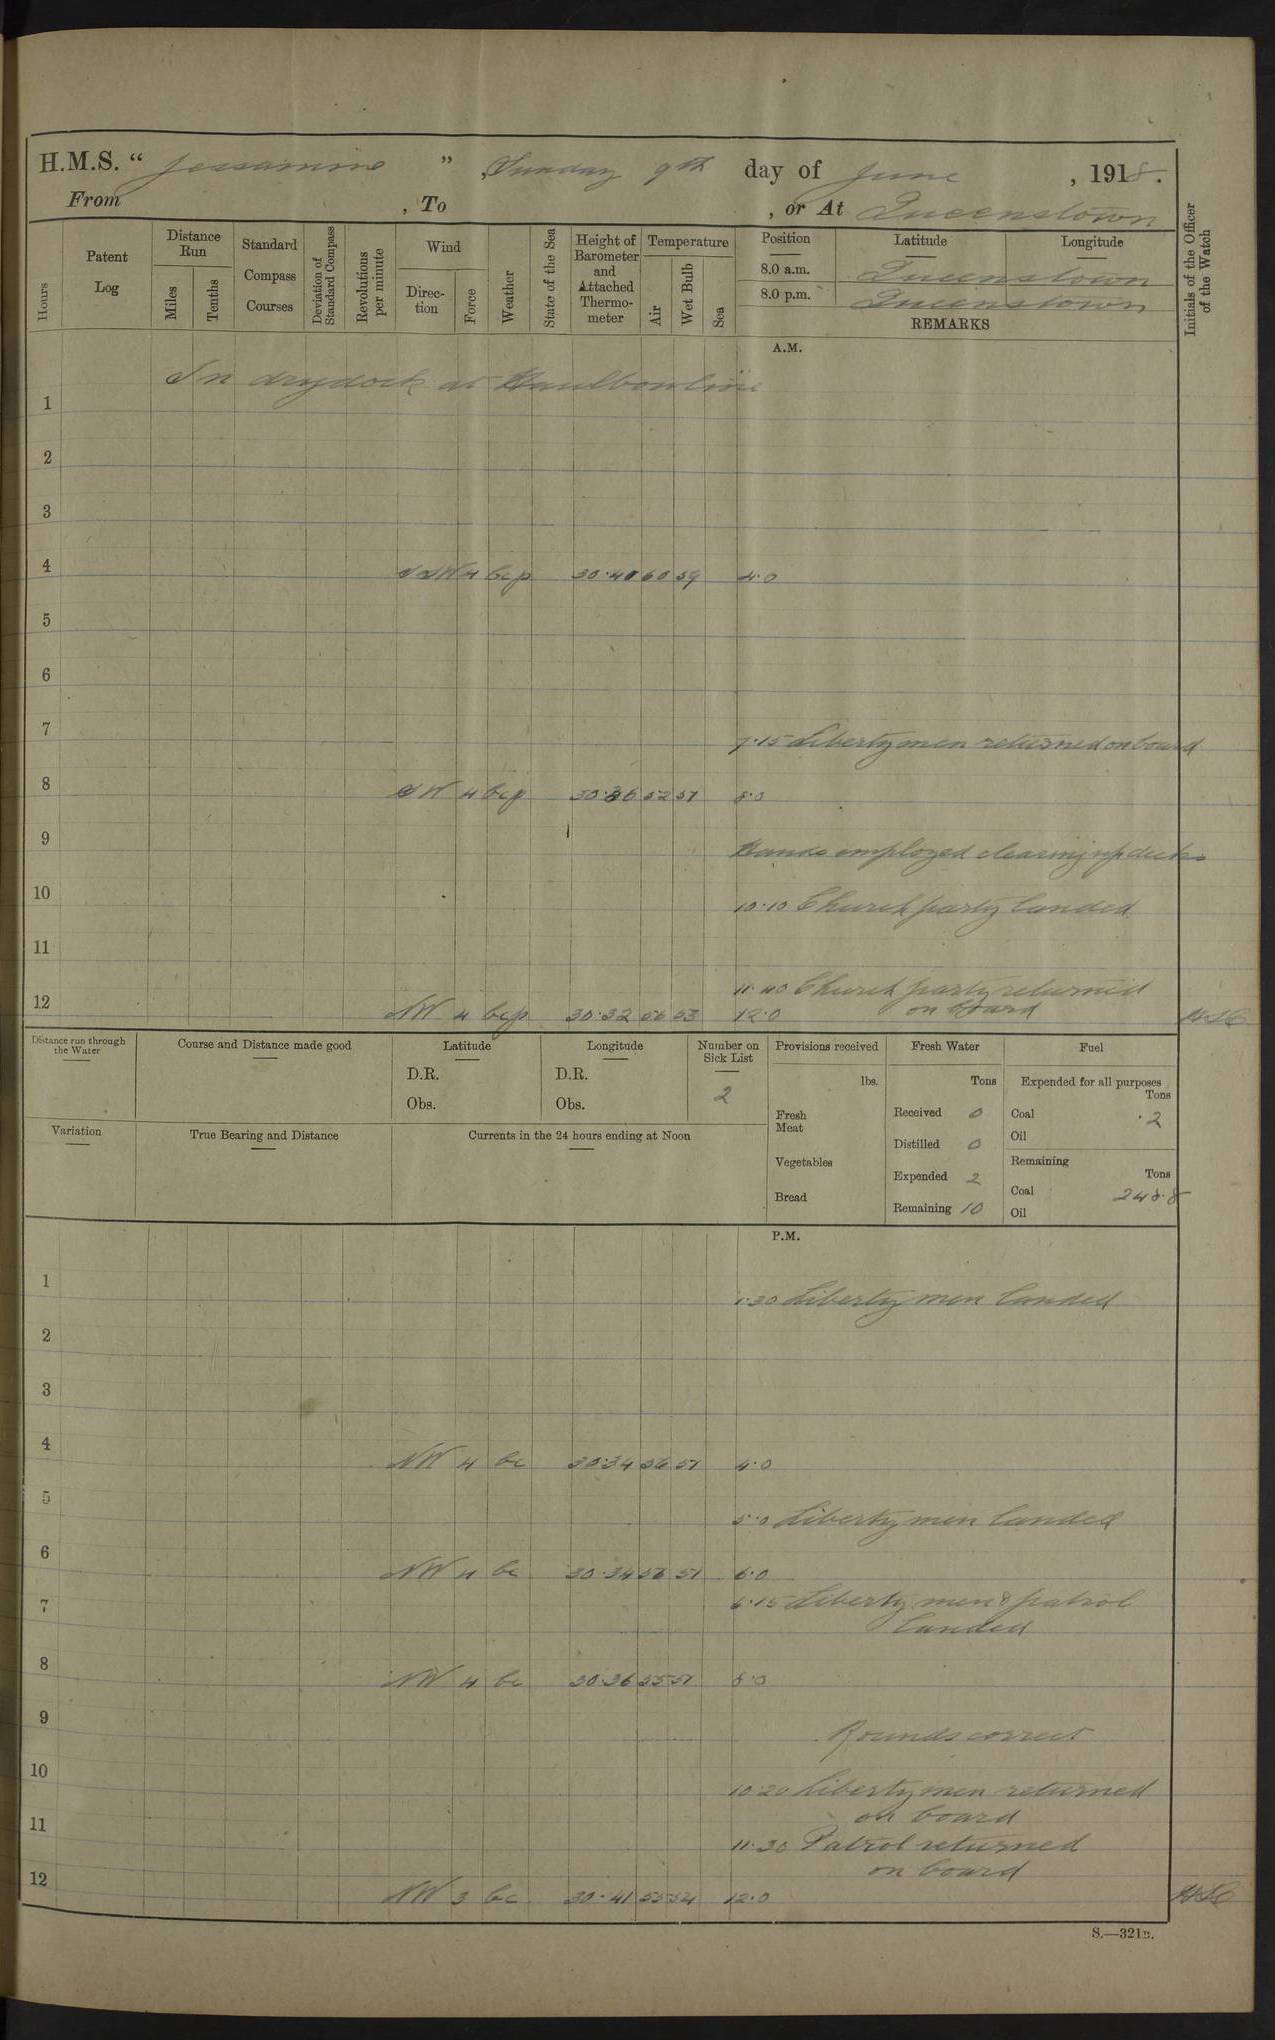 H.M.S. “ Jessamine ”, Sunday 9th day of June, 1918.
From , To , or At Queenstown
Hours
Patent Log
Distance Run
Miles
Tenths
Standard Compass Courses
Deviation of Standard Compass
Revolutions per minute
Wind
Direction
Force
Weather
State of the Sea
Height of Barometer and Attached Thermometer
Temperature
Air
Wet Bulb
Sea
Position Latitude Longitude
8.0 a.m. Queenstown
8.0 p.m. Queenstown
REMARKS
Initials of the Officer of the Watch
A.M.
In drydock at Haulbowline
1
2
3
4 SSW 4 bcp 30.40 60 59 4.0
5
6
7 7.15 Liberty men returned on board
8 SW 4 bcp 30.36 52 51 8.0
9 Hands employed clearing up decks
10 10.10 Church party landed
11
11.40 Church party returned
on board
12 NW 4 bcp 30.32 56 53 12.0
Distance run through the Water
Course and Distance made good
Latitude
D.R.
Obs.
Longitude
D.R.
Obs.
Number on Sick List
2
Provisions received
lbs.
Fresh Meat
Vegetables
Bread
Fresh Water
Tons
Received 0
Distilled 0
Expended 2
Remaining 10
Fuel
Expended for all purposes
Tons
Coal .2
Oil
Remaining
Tons
Coal 248.8
Oil
Variation
True Bearing and Distance
Currents in the 24 hours ending at Noon
P.M.
1 1.30 Liberty men landed
2
3
4 NW 4 bc 30.34 56 51 4.0
5 5.0 Liberty men landed
6 NW 4 bc 30.34 56 51 6.0
7 6.15 Liberty men & patrol
landed
8 NW 4 bc 30.36 55 51 8.0
9 Rounds correct
10 10.20 Liberty men returned
on board
11 11.30 Patrol returned
on board
12 NW 3 bc 30.41 55 54 12.0
S.—321B.